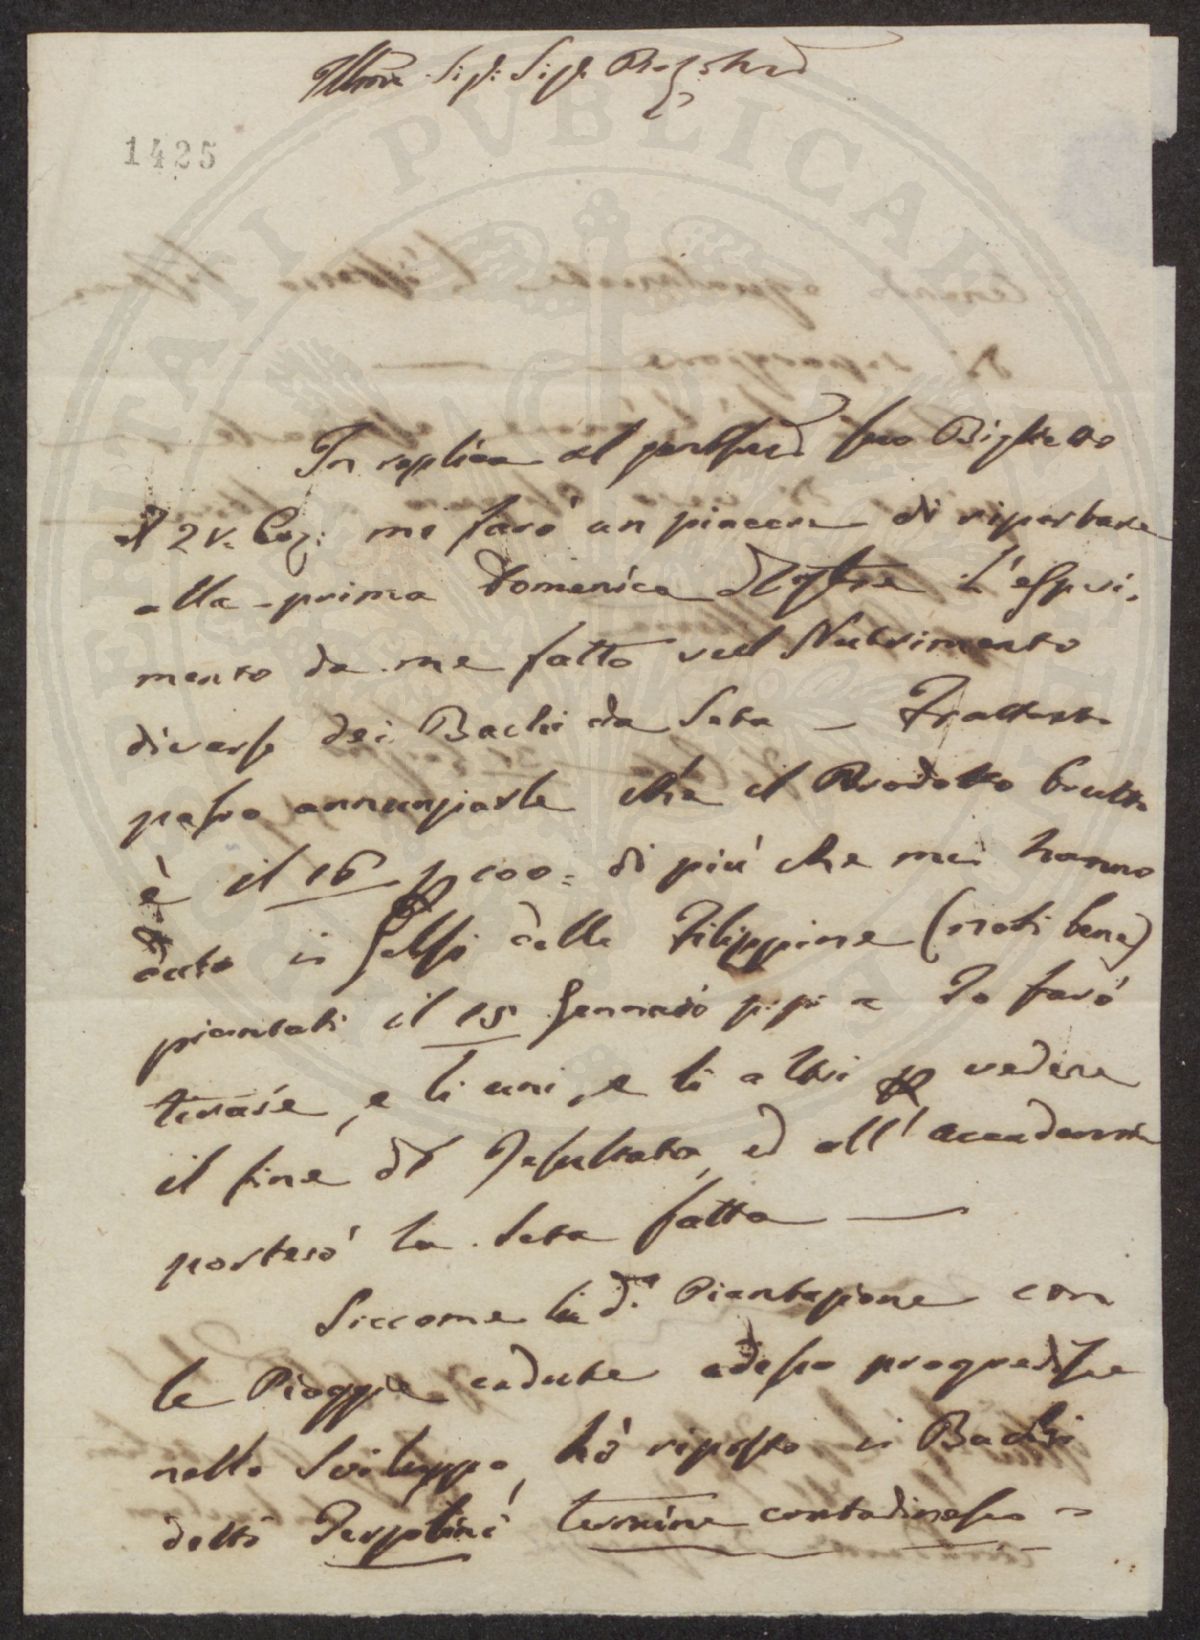 Illmo Sig: Sig.
1425
In replica al suo Biglietto
21. Cor: mi farò un piacere di riportare
alla prima Domenica l'esperi-
mento da me fatto sul Nutrimento
diverso dei Bachi da Seta — Frattanto
posso annunziarle che il Prodotto brutto
è il 16 p 100= di più che mi hanno
dato i Gelsi delle Filippine (noti bene)
piantati il 15 Gennaio p:p: e Io farò
tirare, e li uni, e li altri p vedere
il fine del Resultato, ed all'accademia
porterò la Seta fatta —
Siccome la d.a Piantazione con
le Pioggie cadute adesso progredisce
nello Sviluppo, hò riposto i Bachi
detti termine contadinesco =